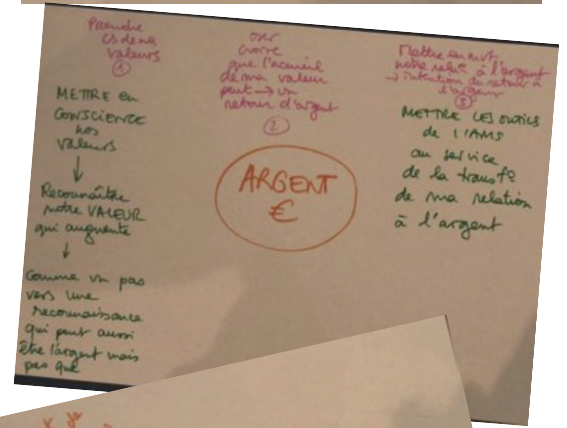 Prendre
cs de nos
valeurs
①
METTRE en
CONSCIENCE
nos
valeurs
↓
Reconnaître
notre VALEUR
qui augmente
↓
Comme un pas
vers une
reconnaissance
qui peut aussi
être l'argent mais
pas que
oser
croire
que l'accueil
de ma valeur
peut → un
retour d'argent
②
ARGENT
€
Mettre en mvt
notre rela° à l'argent
→ intention du retour à
l'argent
③
METTRE LES OUTILS
de l'IAMS
au service
de la transf°
de ma relation
à l'argent